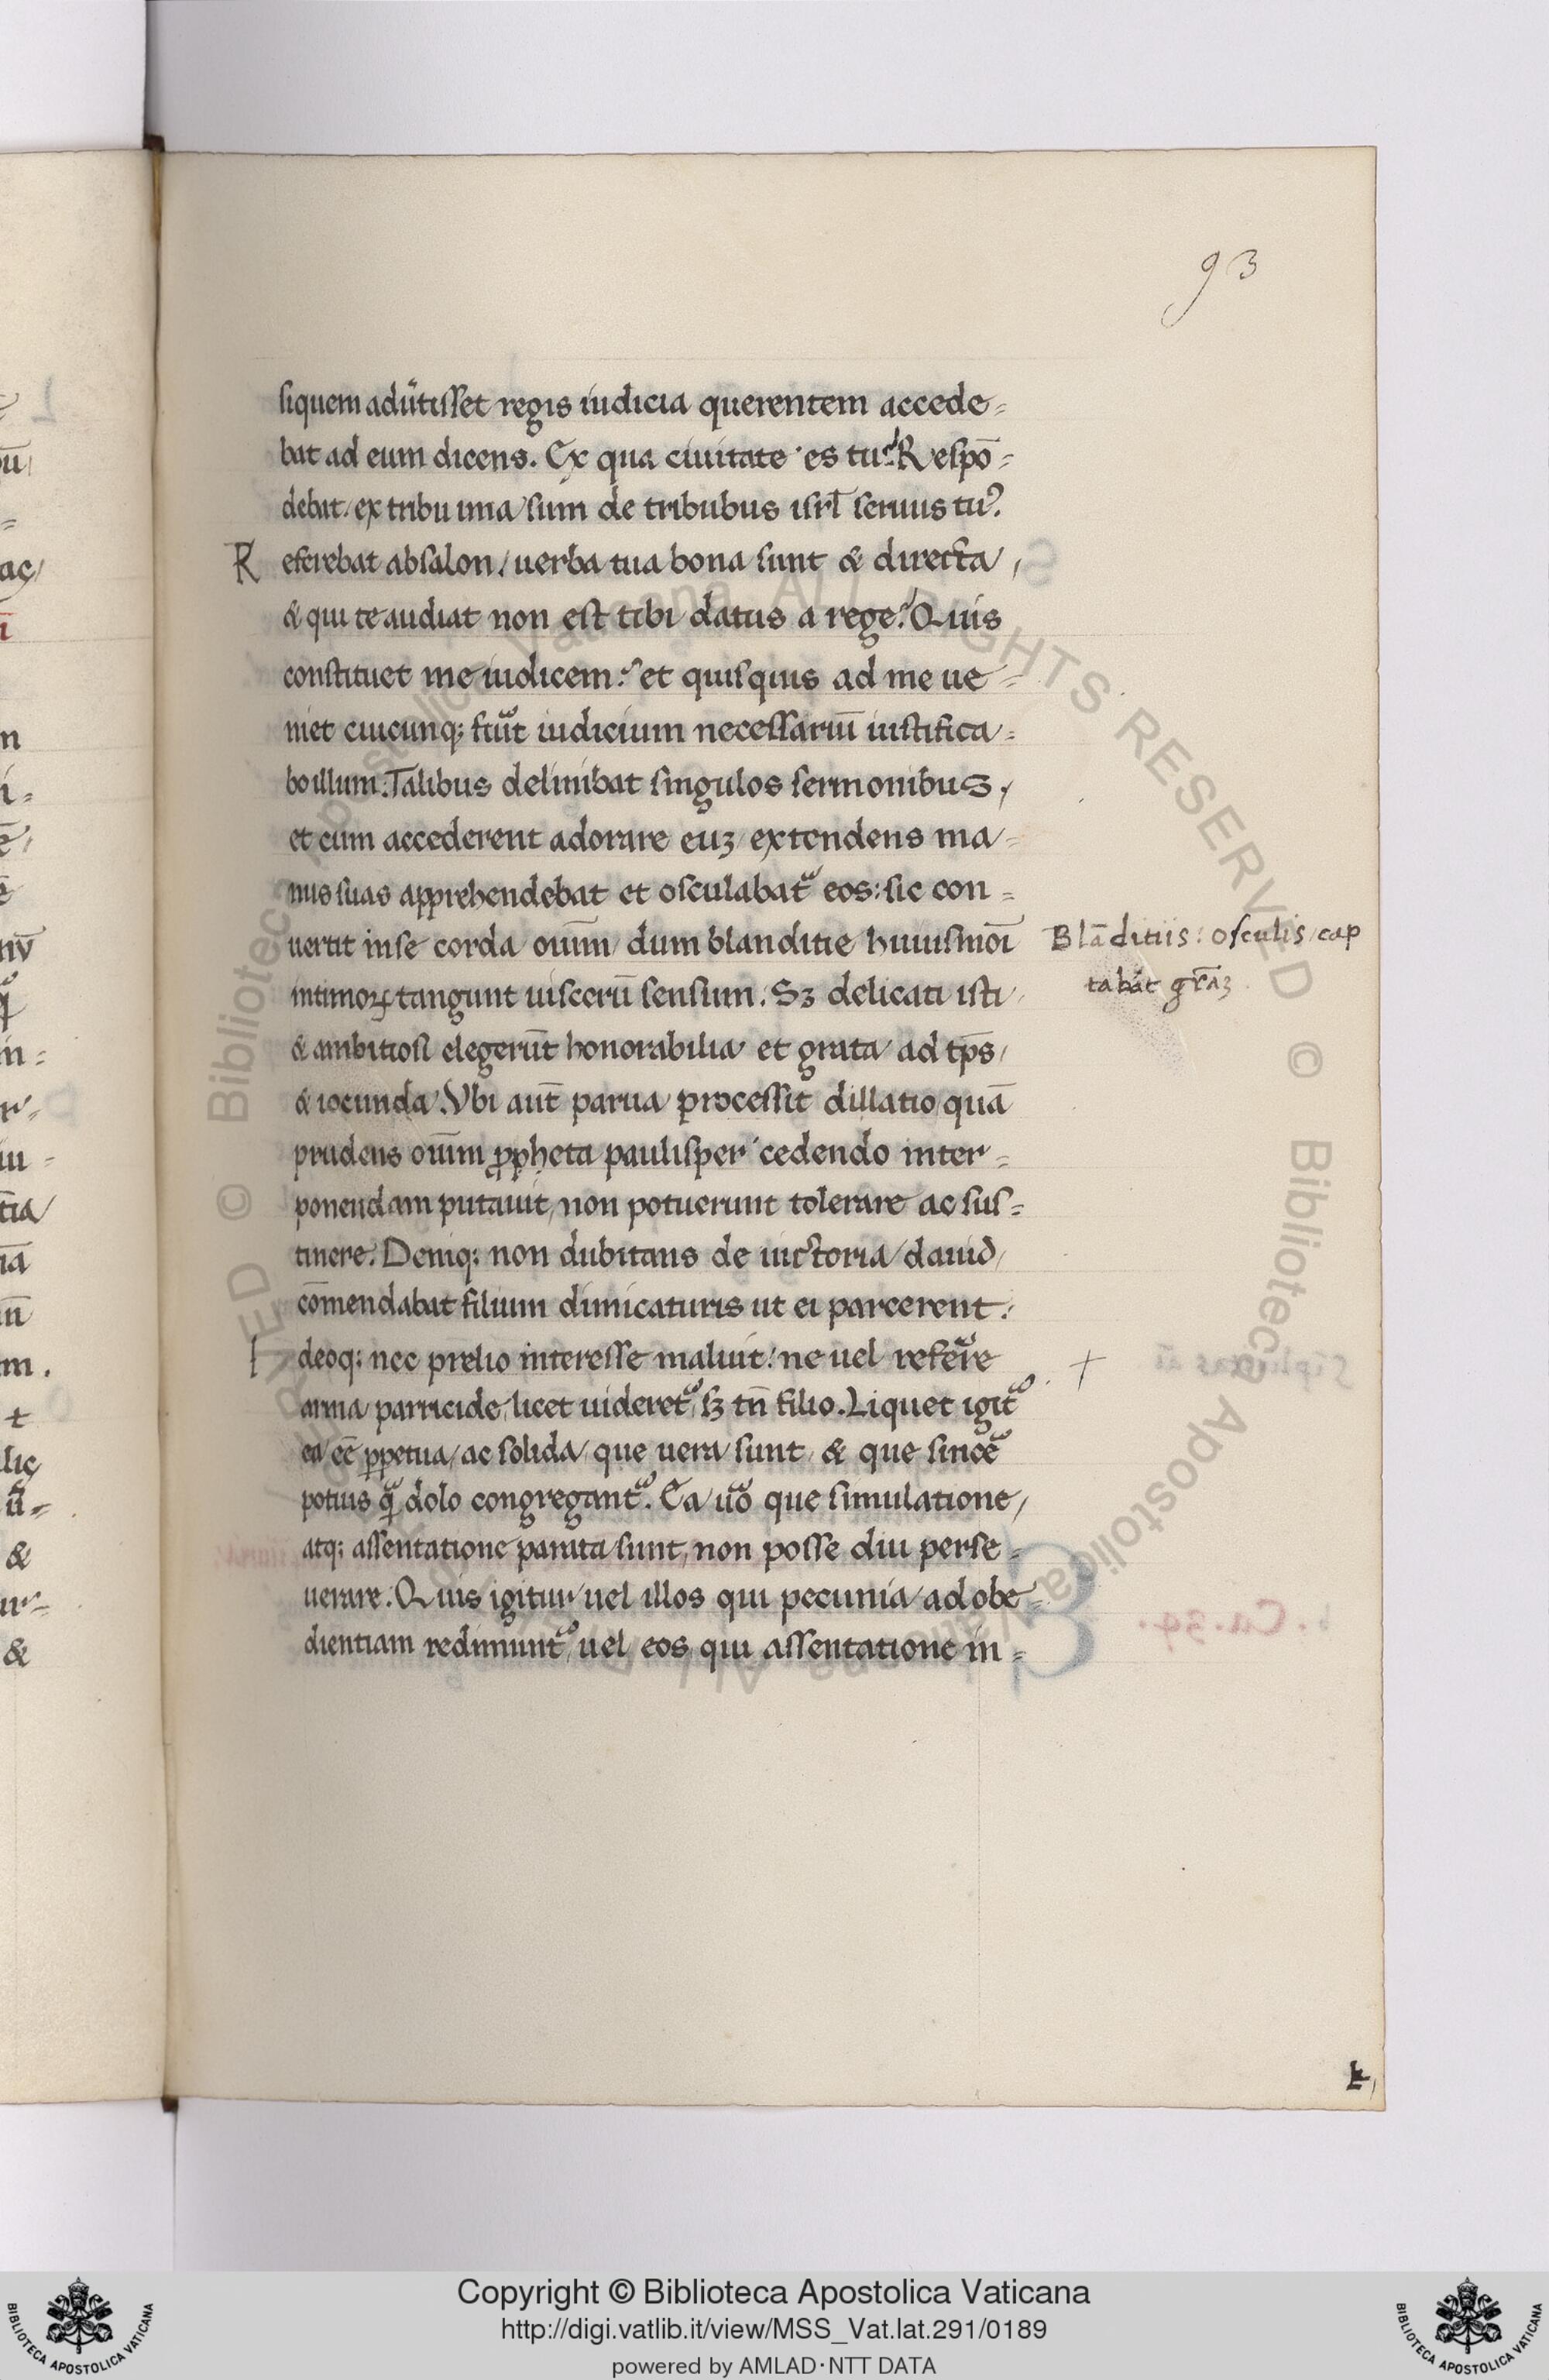 93
siquem adũtisset regis iudicia querentem accede=
bat ad eum dicens. Ex qua ciuitate es tu? Respō=
debat/ ex tribu una/ sum de tribubus isrl̄ seruus tuꝰ.
Referebat absalon/ uerba tua bona sunt & directa/
& qui te audiat non est tibi datus a rege? Quis
constituet me iudicem? et quisquis ad me ue=
niet cuicunq; fũt iudicium necessariū iustifica=
bo illum. Talibus delinibat singulos sermonibus,
et cum accederent adorare euꝫ/ extendens ma=
nus suas apprehendebat et osculabat᷑ eos: sic con=
uertit in se corda oūm/ dum blanditie huiusmōi
Blāditiis: osculis/ cap
intimoꝝ tangunt uiscerū sensum. Sꝫ delicati isti
tabat gr̄aꝫ
& ambitiosi elegerūt honorabilia et grata ad tp̄s/
& iocunda. Vbi aūt parua processit dillatio/ quā
prudens oūm ꝓpheta paulisper cedendo inter=
ponendam putauit, non potuerunt tolerare ac sus=
tinere. Deniq; non dubitans de uictoria dauid/
cōmendabat filium dimicaturis ut ei parcerent.
Ideoq; nec prelio interesse maluit: ne uel refer̃e
arma parricide, licet uideret᷑, sꝫ tn̄ filio. Liquet igit᷑
ea eē ꝑpetua/ ac solida/ que uera sunt, & que since᷑
potius q̃ dolo congregant᷑. Ea ũo que simulatione/
atq; assentatione parata sunt, non posse diu perse=
uerare. Quis igitur uel illos qui pecunia ad obe=
dientiam redimunt᷑, uel eos qui assentatione in=
Copyright © Biblioteca Apostolica Vaticana
http://digi.vatlib.it/view/MSS_Vat.lat.291/0189
powered by AMLAD·NTT DATA